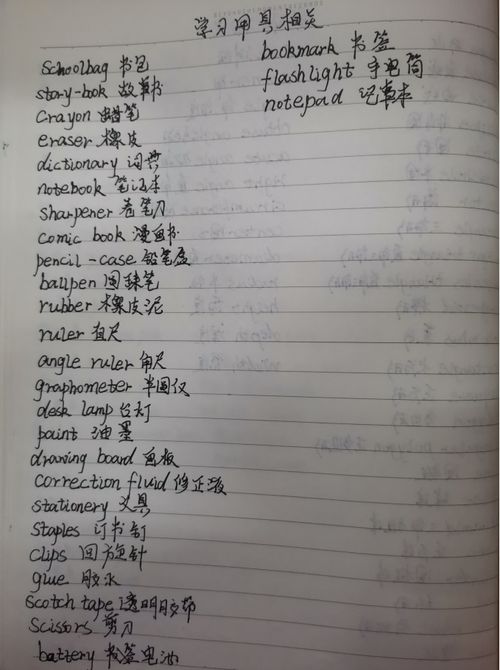 学习用具相关
schoolbag 书包
story-book 故事书
crayon 蜡笔
eraser 橡皮
dictionary 词典
notebook 笔记本
sharpener 卷笔刀
comic book 漫画书
pencil-case 铅笔盒
ballpen 圆珠笔
rubber 橡皮泥
ruler 直尺
angle ruler 角尺
graphometer 半圆仪
desk lamp 台灯
paint 油墨
drawing board 画板
correction fluid 修正液
stationery 文具
staples 订书钉
clips 回旋针
glue 胶水
scotch tape 透明胶带
scissors 剪刀
battery 电池
bookmark 书签
flashlight 手电筒
notepad 记事本